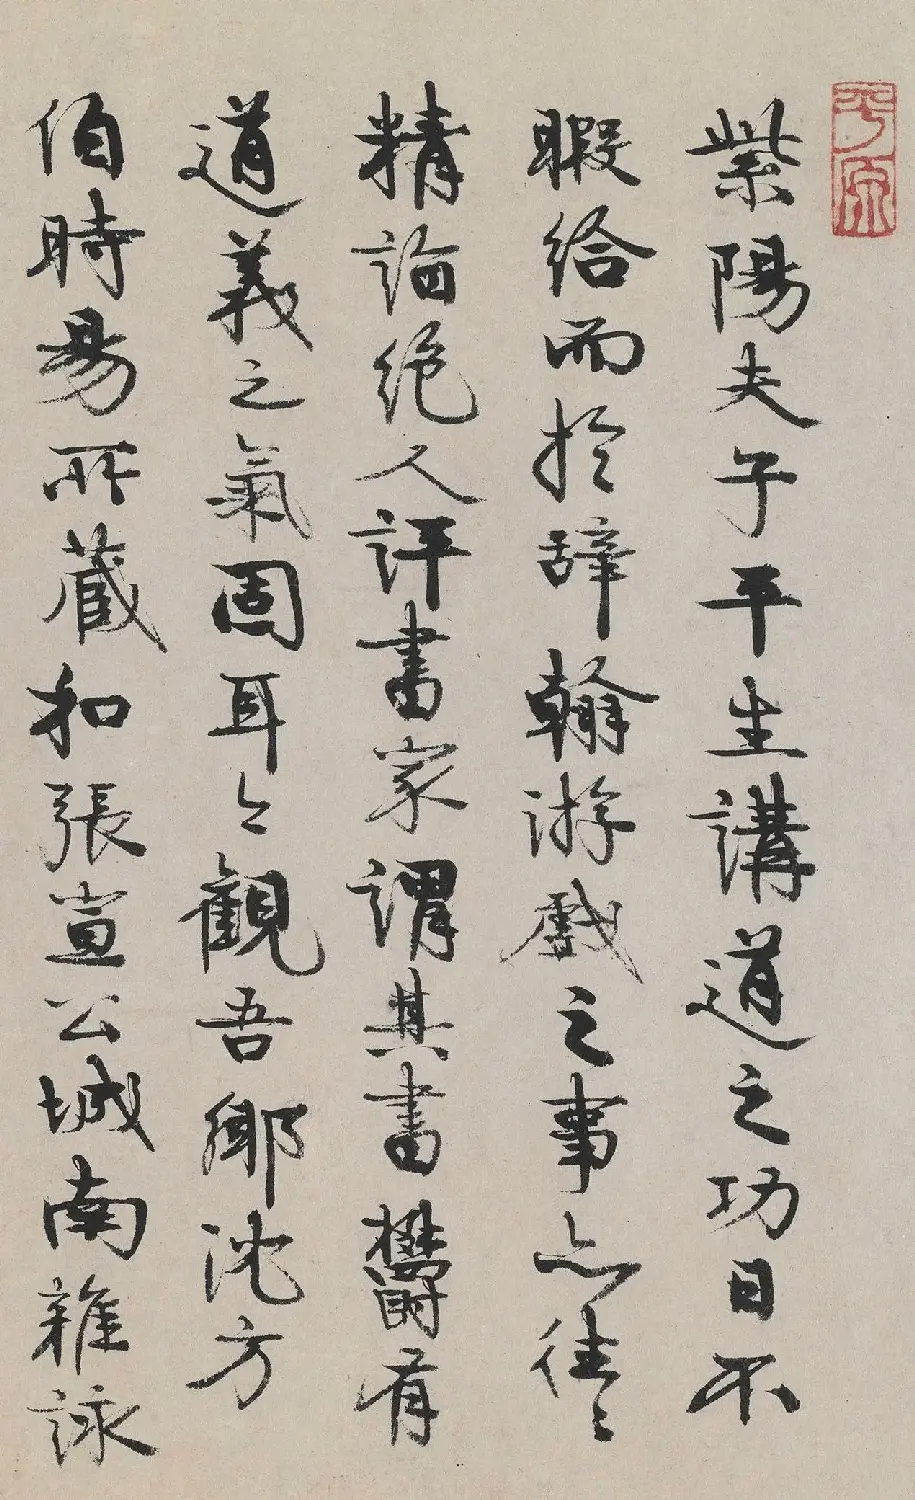 平原
紫陽夫子平生講道之功日不
暇給而於辭翰游戲之事亦往々
精詣絕人評書家謂其書欝有
道義之氣固耳今觀吾鄉沈方
伯時易所藏和張宣公城南雜詠